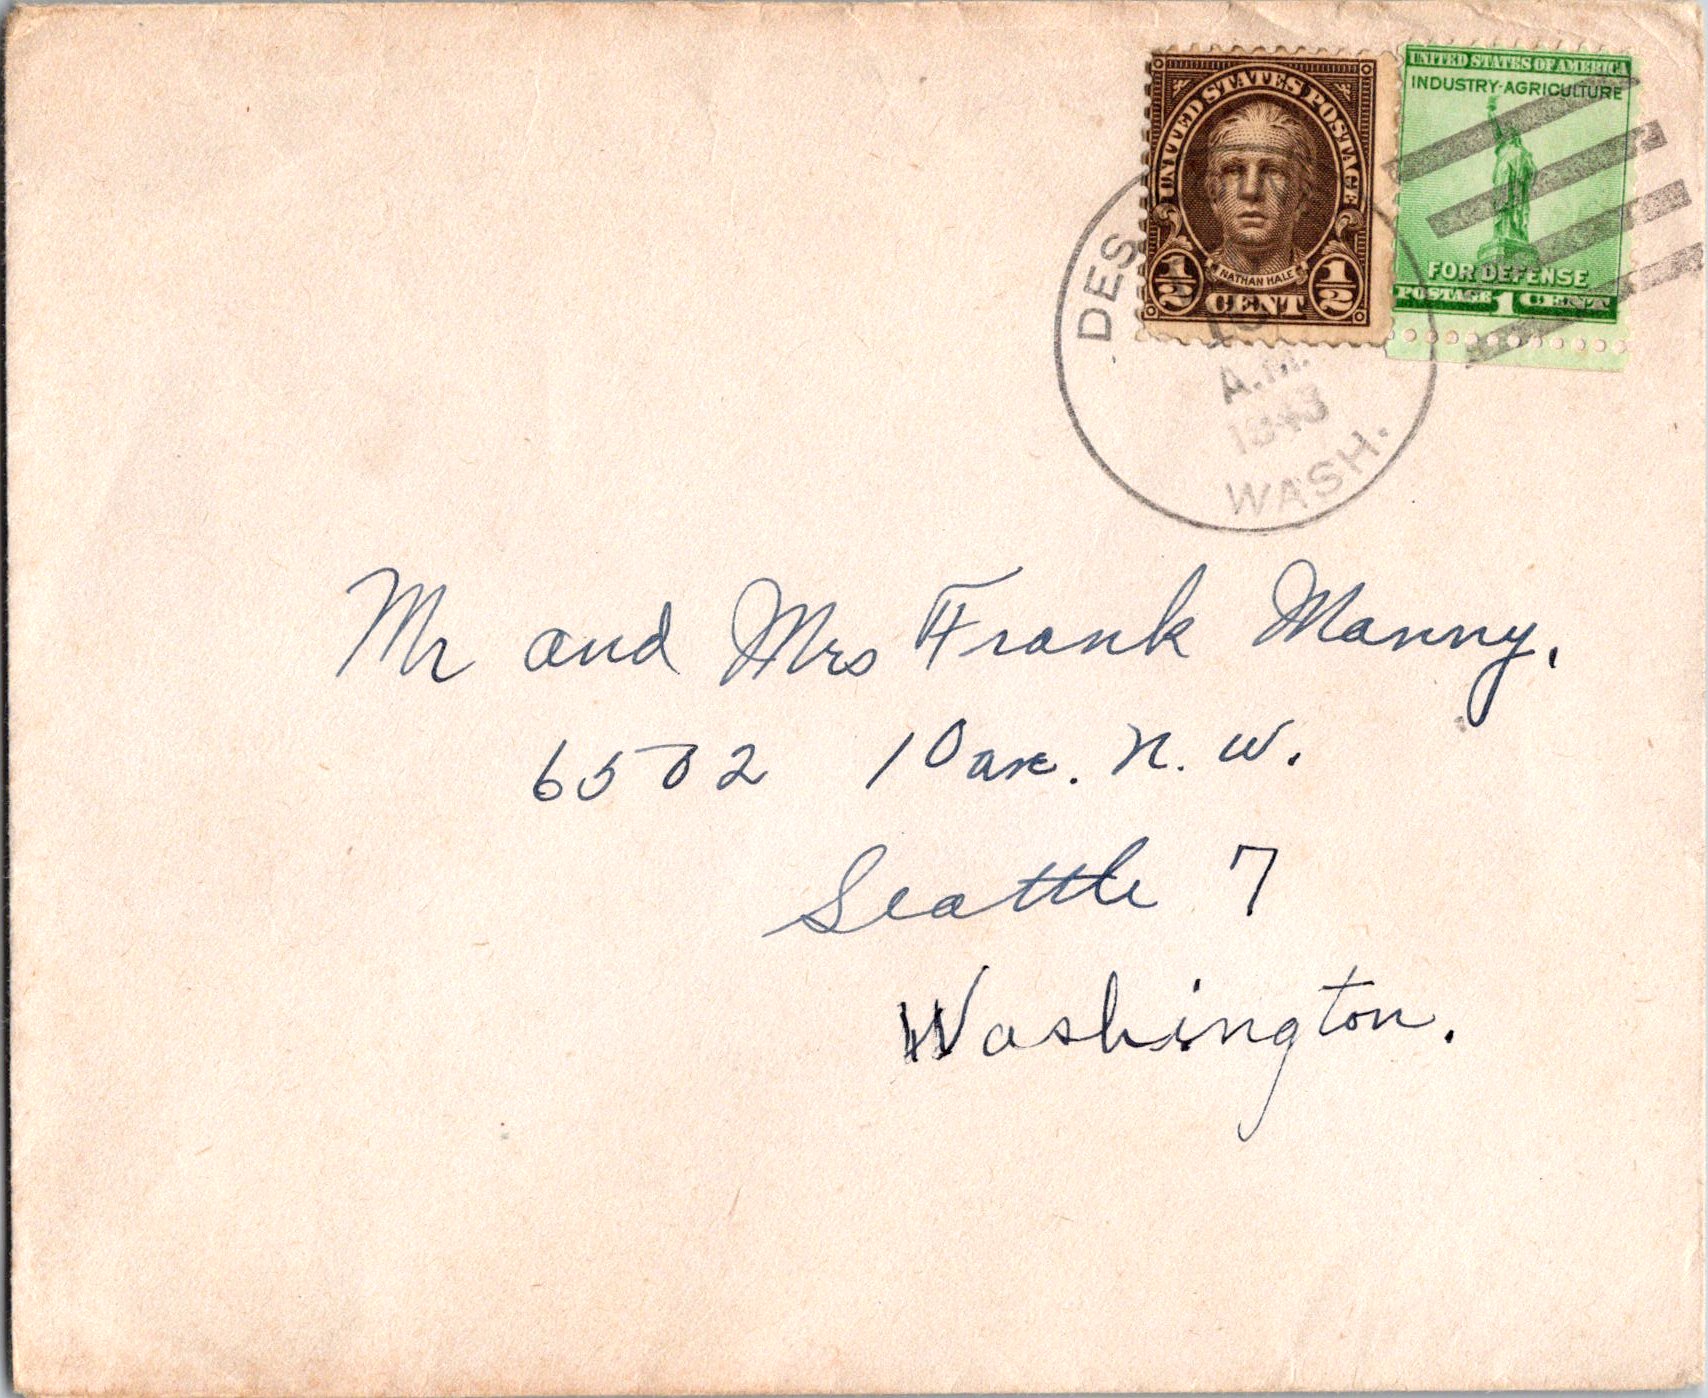 UNITED STATES POSTAGE
NATHAN HALE
1/2 CENT 1/2
UNITED STATES OF AMERICA
INDUSTRY-AGRICULTURE
FOR DEFENSE
POSTAGE 1 CENT
DES
A.M.
1943
WASH.
Mr and Mrs Frank Manny.
6502 10 ave. N. W.
Seattle 7
Washington.